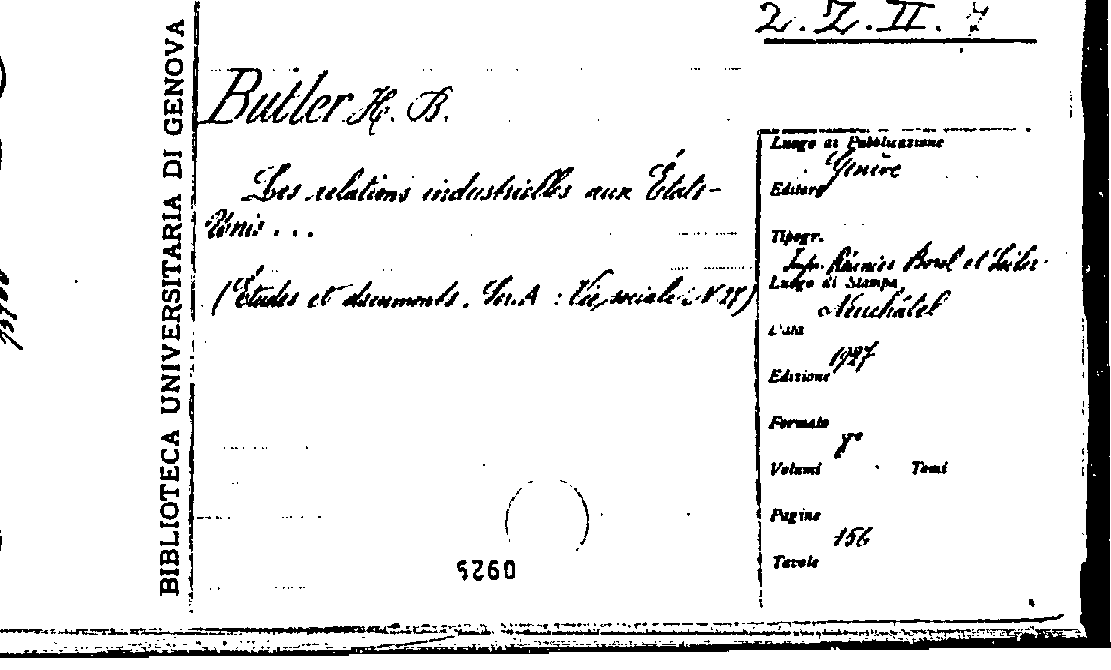 2. Z. II. 7
BIBLIOTECA UNIVERSITARIA DI GENOVA
Butler H. B.
Les relations industrielles aux États-
Unis . . .
(Études et documents. Ser. A : Vie sociale : N 27)
Luogo di Pubblicazione
Genève
Editore
Tipogr.
Impr. Réunies Borel et Seiler
Luogo di Stampa
Neuchâtel
Data
1927
Edizione
Formato
8°
Volumi Tomi
Pagine
156
Tavole
0925